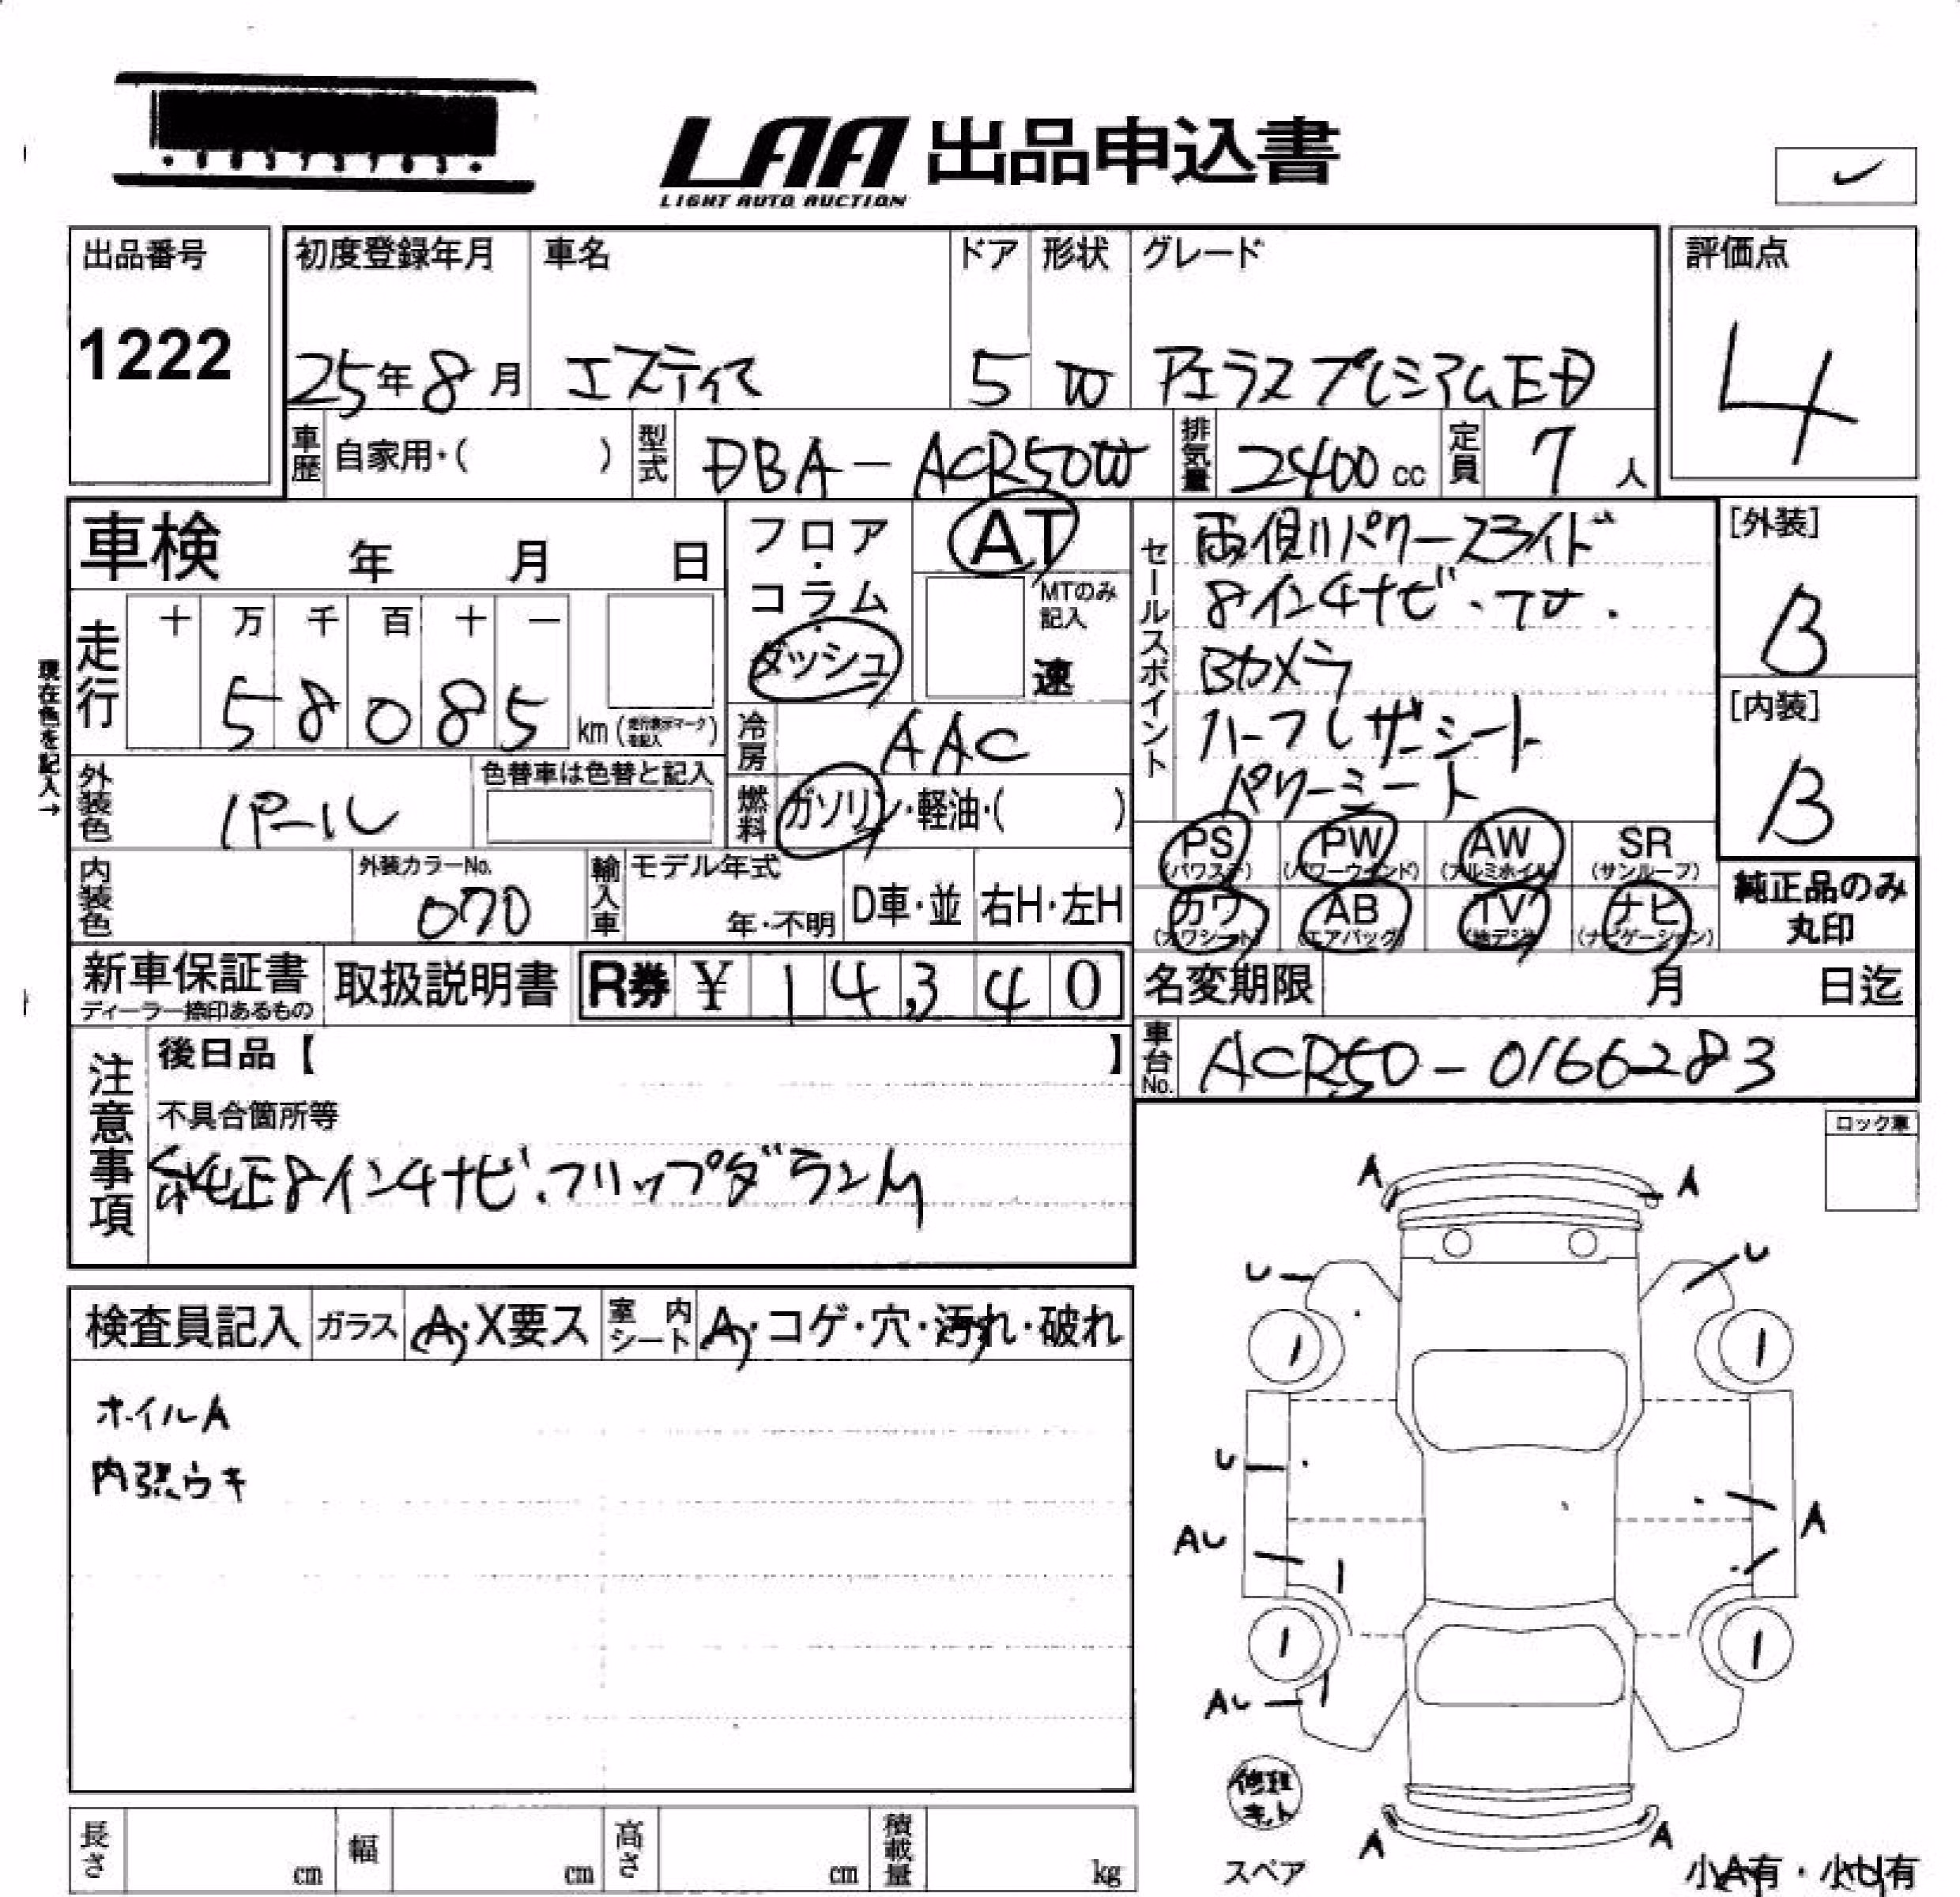 LAA 出品申込書
LIGHT AUTO AUCTION
出品番号
1222
初度登録年月
25年8月
車名
エスティマ
ドア
5
形状
W
グレード
アエラスプレミアムED
評価点
4
車歴 自家用・( )
型式 DBA-ACR50W
排気量 2400cc
定員 7人
車検 年 月 日
走行
十 万 千 百 十 一
58085 km (走行表示マークを記入)
現在色を記入→
外装色 パール
色替車は色替と記入
内装色
外装カラーNo.
070
フロア・コラム・ダッシュ
AT
MTのみ記入
速
冷房 AAC
燃料 ガソリン・軽油・( )
輸入車
モデル年式
年・不明
D車・並
右H・左H
セールスポイント
両側パワースライド
8インチナビ・TV.
Bカメラ
ハーフレザーシート
パワーシート
[外装]
B
[内装]
B
PS (パワステ)
PW (パワーウインド)
AW (アルミホイル)
SR (サンルーフ)
カワ (カワシート)
AB (エアバッグ)
TV (地デジ)
ナビ (ナビゲーション)
純正品のみ
丸印
新車保証書
ディーラー捺印あるもの
取扱説明書
R券 ¥ 14,340
名変期限 月 日迄
車台No. ACR50-0166283
注意事項
後日品【 】
不具合箇所等
純正8インチナビ、フリップダウンM
ロック車
検査員記入
ガラス A・X要ス
室内シート A・コゲ・穴・汚れ・破れ
ホイルA
内張ウキ
A A
U U
1 1
U
A
AU
1 1
AU
修理キット
スペア
A A
小A有・小U有
長さ cm
幅 cm
高さ cm
積載量 kg